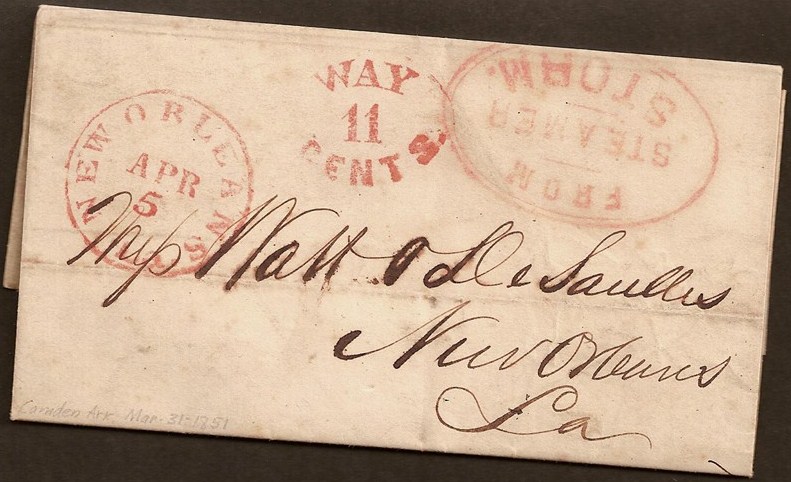 NEW ORLEANS
APR
5
WAY
11
CENTS
FROM
STEAMER
STORM.
Mess Watt & De Saulles
New Orleans
La
Camden Ark. Mar. 31-1851